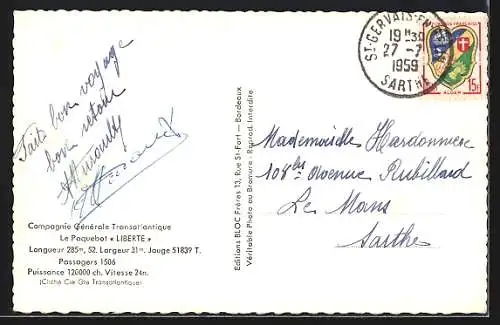 Fait bon voyage
bon retour
Compagnie Générale Transatlantique
Le Paquebot « LIBERTE »
Longueur 285m, 52. Largeur 31m. Jauge 51839 T.
Passagers 1506
Puissance 120000 ch. Vitesse 24n.
(Cliché Cie Gle Transatlantique)
Editions BLOC Frères 13, Rue St-Fort — Bordeaux
Véritable Photo au Bromure - Reprod. Interdire
ST-GERVAIS-EN-
19H30
27 -7
1959
SARTHE
ALGER
15F
Mademoiselle Hardonniere
108bis Avenue Rubillard
Le Mans
Sarthe